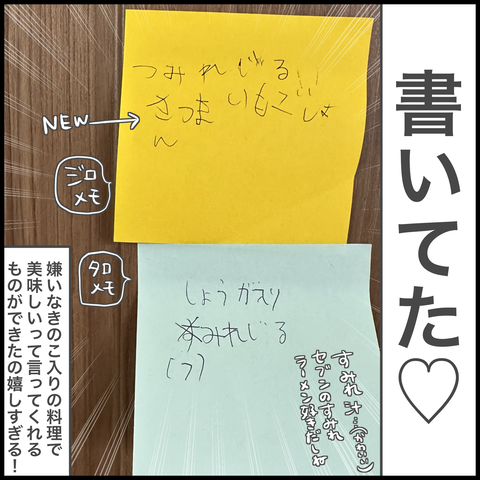 書いてた♡
つみれじる
NEW→
さつまいもごはん
ジロメモ
タロメモ
しょうがえり
すみれじる
(つ)
すみれ汁…(かわいい)
セブンのすみれ
ラーメン好きだしね
嫌いなきのこ入りの料理で
美味しいって言ってくれる
ものができたの嬉しすぎる！